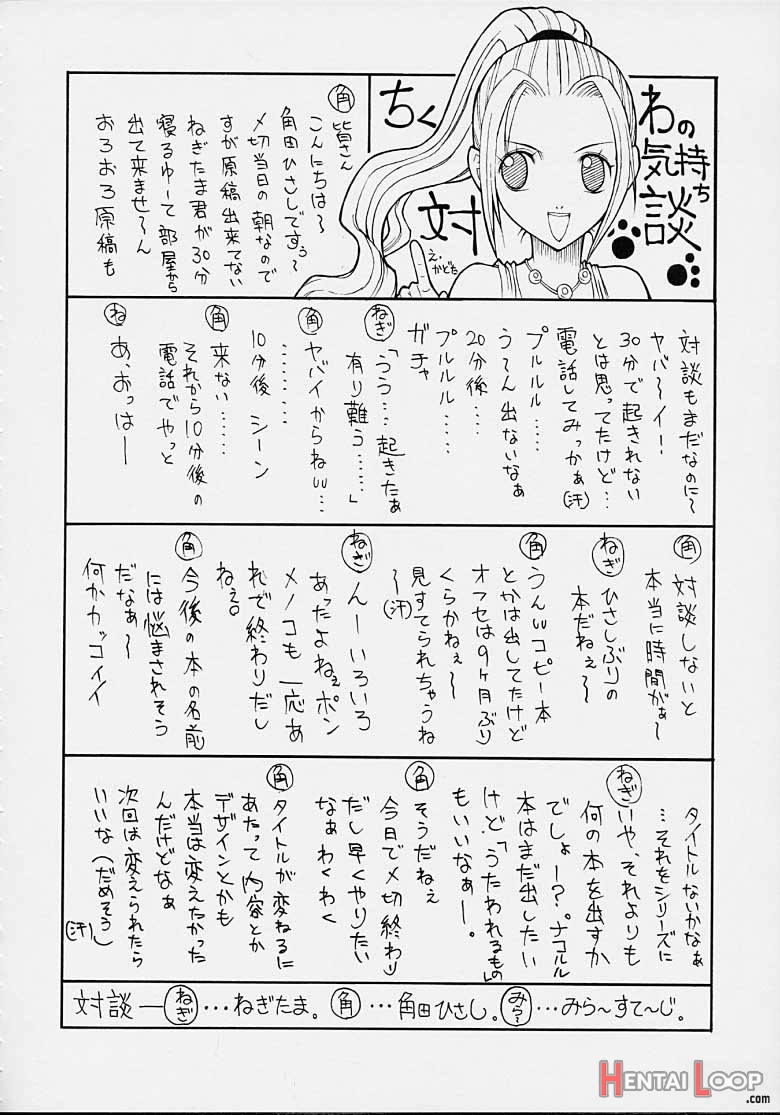 ちくわの気持ち
対談
え・かどた
角 皆さん
こんにちは〜
角田ひさしですぅ〜
〆切当日の朝なので
すが原稿出来てない
ねぎたま君が30分
寝るゆーて部屋から
出て来ませ〜ん
おろおろ原稿も
対談もまだなのに〜
ヤバ〜イー!
30分で起きれない
とは思ってたけど…
電話してみっかぁ(汗)
プルルル……
う〜ん出ないなぁ
20分後……
プルルル……
ガチャ
ねぎ 「うう…起きたぁ
有り難う……」
角 ヤバイからねw…
………
10分後 シーン
角 来ない……
それから10分後の
電話でやっと
ね あ、おっはー
角 対談しないと
本当に時間がぁ〜
ねぎ ひさしぶりの
本だねぇ〜
角 うんwコピー本
とかは出してたけど
オフセは9ヶ月ぶり
くらかねぇ〜
見すてられちゃうね
〜(汗)
ねぎ んーいろいろ
あったよねぇポン
メノコも一応あ
れで終わりだし
ねぇ。
角 今後の本の名前
には悩まされそう
だなぁ〜
何かカッコイイ
タイトルないかなぁ
…それをシリーズに
ねぎ いや、それよりも
何の本を出すか
でしょー?。ナコルル
本はまだ出したい
けど「うたわれるもの」
もいいなぁー。
角 そうだねぇ
今日で〆切終わり
だし早くやりたい
なぁわくわく
角 タイトルが変ねるに
あたって内容とか
デザインとかも
本当は変えたかった
んだけどなぁ
次回は変えられたら
いいな(だめそう)
(汗)
対談—ねぎ…ねぎたま。角…角田ひさし。みら〜…みら〜すて〜じ。
HENTAI LOOP
.com